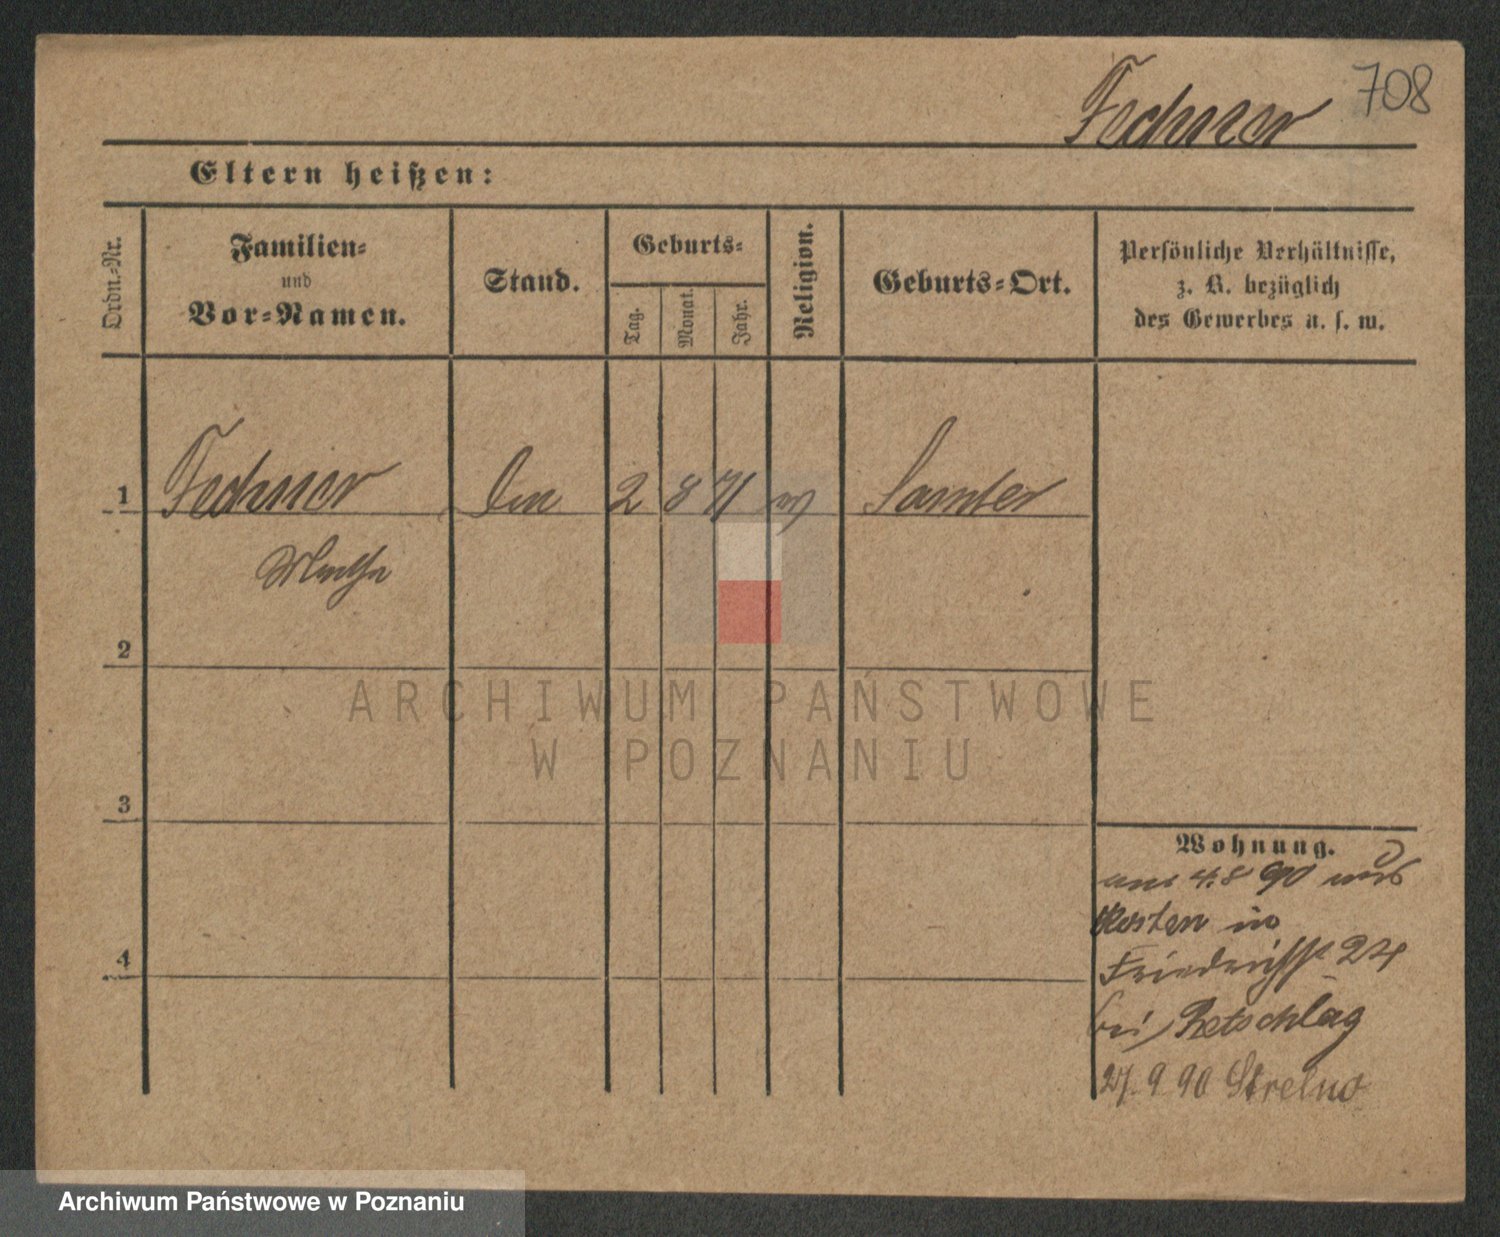 708
Fechner
Eltern heißen:
Ordn.-Nr.
Familien-
und
Vor-Namen.
Stand.
Geburts-
Tag.
Monat.
Jahr.
Religion.
Geburts-Ort.
Persönliche Verhältnisse,
z. B. bezüglich
des Gewerbes u. s. w.
1 Fechner 2 8 71 Samter
2
3
4
Wohnung.
4.8 90 aus
Kosten in
Friedrichstr 24
bei Retschlag
27. 9 90 Strelno
ARCHIWUM PAŃSTWOWE
W POZNANIU
Archiwum Państwowe w Poznaniu